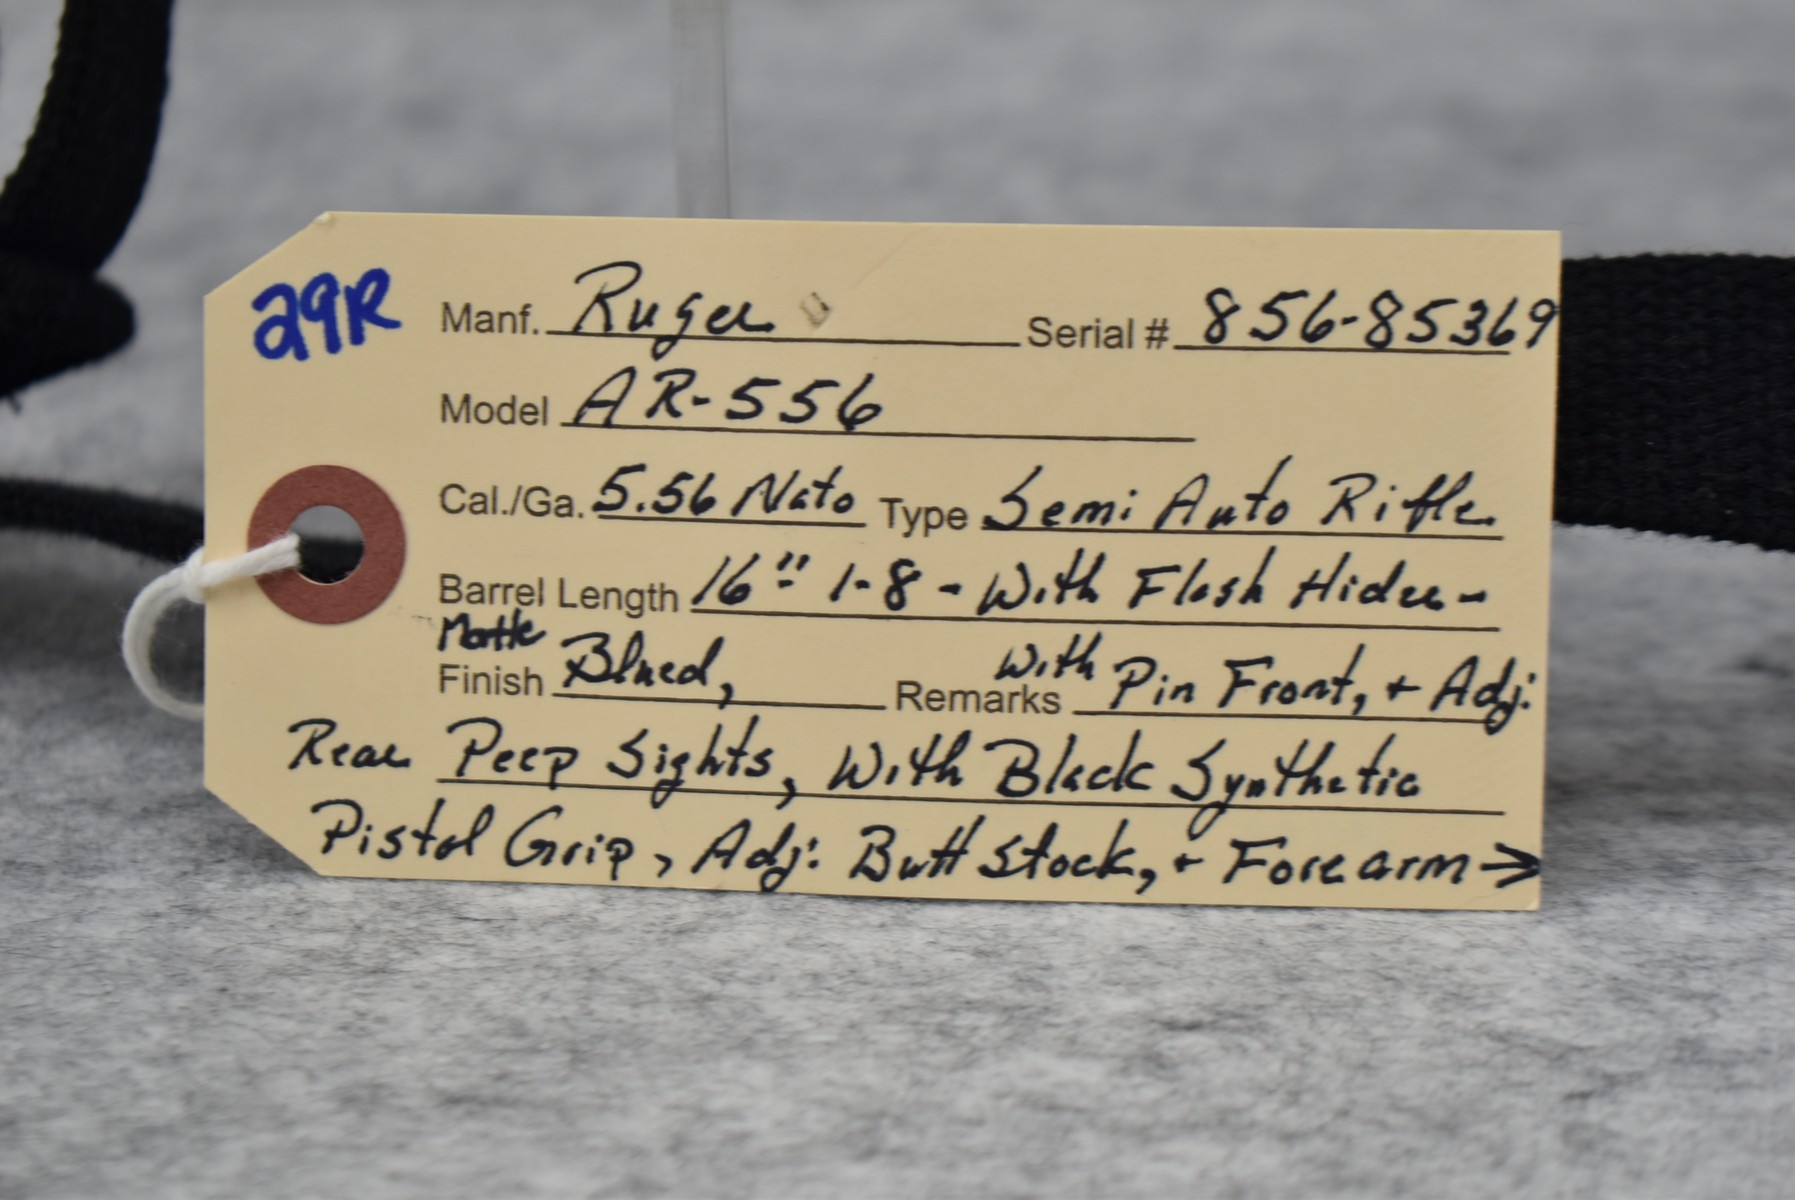 29R
Manf. Ruger Serial # 856-85369
Model AR-556
Cal./Ga. 5.56 Nato Type Semi Auto Rifle
Barrel Length 16" 1-8 - With Flash Hider -
Finish Matte Blued, Remarks With Pin Front, + Adj:
Rear Peep Sights, With Black Synthetic
Pistol Grip, Adj: Butt Stock, + Forearm →